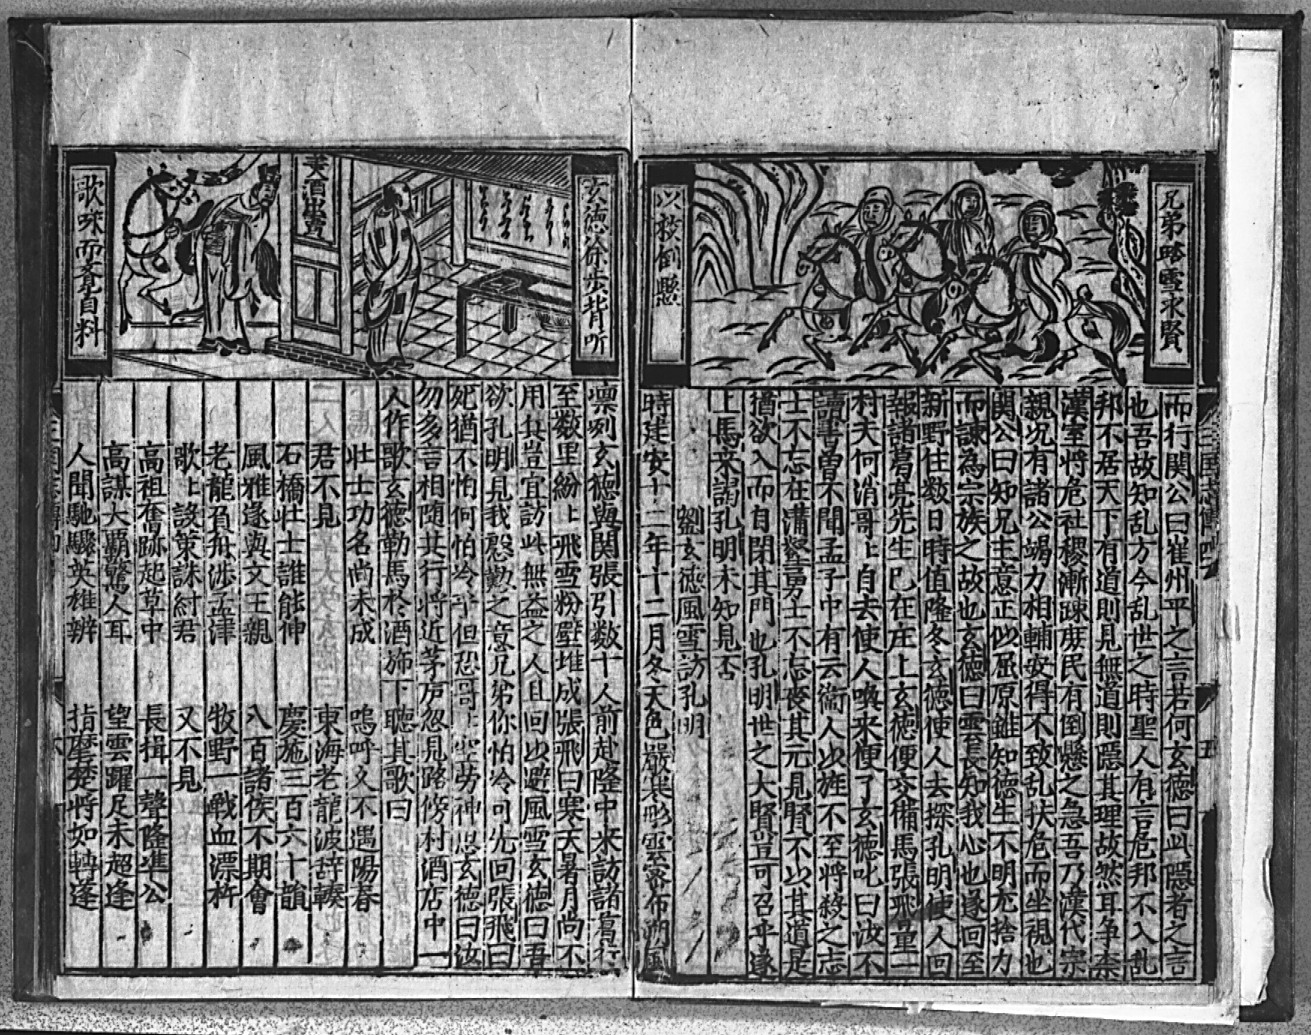 兄弟踏雪求賢
以救倒懸
而行関公曰崔州平之言若何玄德曰此隱者之言
也吾故知乱方今乱世之時聖人有言危邦不入乱
邦不居天下有道則見無道則隱其理故然耳争柰
漢室将危社稷漸踈庶民有倒懸之急吾乃漢代宗
親况有諸公竭力相輔安得不致乱扶危而坐視也
関公曰知兄主意正似屈原雖知德生不明尤捨力
而諫為宗族之故也玄德曰雲長知我心也遂回至
新野住数日時值隆冬玄德使人去探孔明使人回
報諸葛亮先生已在庄上玄德便交備馬張飛曰量一
村夫何消哥〻自去使人喚来便了玄德叱曰汝不
讀書曽不聞孟子中有云衞人以旌不至将殺之志
士不忘在溝壑勇士不忘丧其元見賢不以其道是
猶欲入而自閉其門也孔明世之大賢豈可召乎遂
上馬来謁孔明未知見否
劉玄德風雪訪孔明
時建安十二年十二月冬天色嚴寒彤雲密布朔風
玄德徐步背所
歌咏而
自料
凛冽玄德與関張引数十人前赴隆中来訪諸葛行
至数里紛〻飛雪粉壁堆成張飛曰寒天暑月尚不
用兵豈宜訪此無益之人且回以避風雪玄德曰吾
欲孔明見我慇懃之意兄弟你怕冷可先回張飛曰
死猶不怕何怕冷乎但恐哥〻空劳神思玄德曰汝
勿多言相随其行将近茅庐忽見路傍村酒店中一
人作歌玄德勒馬於酒斾下聽其歌曰
壮士功名尚未成　嗚呼久不遇陽春
君不見　東海老龍波辞轅
石橋壮士誰能伸　慶施三百六十韻
風雅遂與文王親　八百諸侯不期會
老龍負舟涉孟津　牧野一戰血漂杵
歌上設策誅紂君　又不見
高祖奮跡起草中　長揖一聲隆準公
高謀大覇驚人耳　望雲躍足未超逢
人聞馳驟英雄辨　指麾楚将如轉蓬